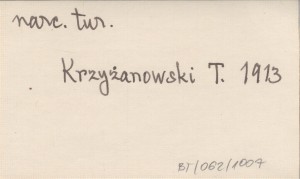 narc. tur.
Krzyżanowski T. 1913
BT/062/1004